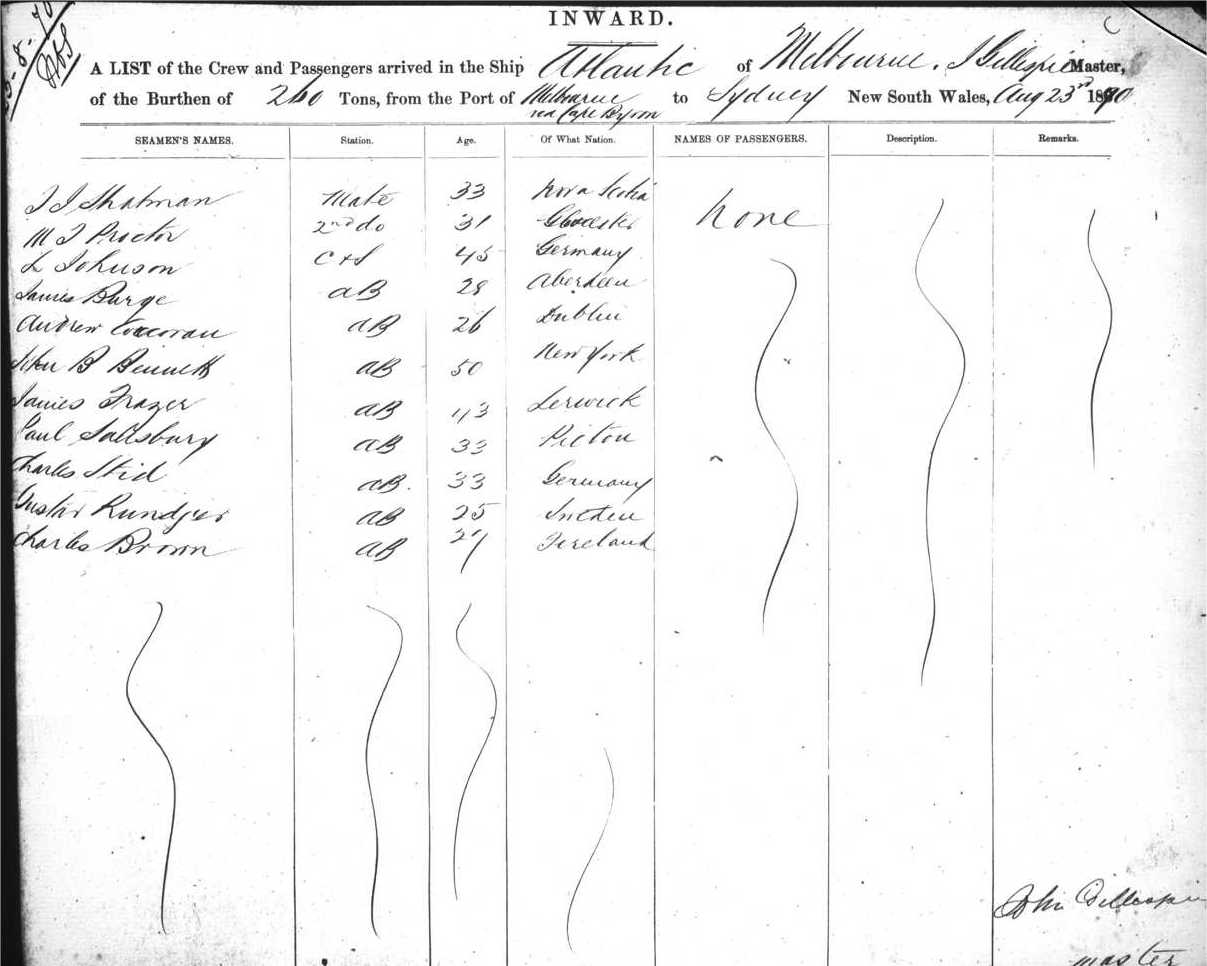 INWARD.
C
A LIST of the Crew and Passengers arrived in the Ship Atlantic of Melbourne. J Gillespie Master,
of the Burthen of 260 Tons, from the Port of Melbourne to Sydney New South Wales, Aug 23rd 1870
via Cape Byron
SEAMEN'S NAMES. Station. Age. Of What Nation. NAMES OF PASSENGERS. Description. Remarks.
Mate 33 Nova Scotia None
M J Proctor 2nd do 31 Gloucester
L Johnson C & S 45 Germany
James Burge AB 28 Aberdeen
Andrew Corcoran AB 26 Dublin
John B Bennett AB 50 New York
James Frazer AB 43 Lerwick
Paul Salisbury AB 33 Picton
Charles Stid AB. 33 Germany
Gustav AB 25 Sweden
Charles Brown AB 27 Ireland
John Gillespie
master